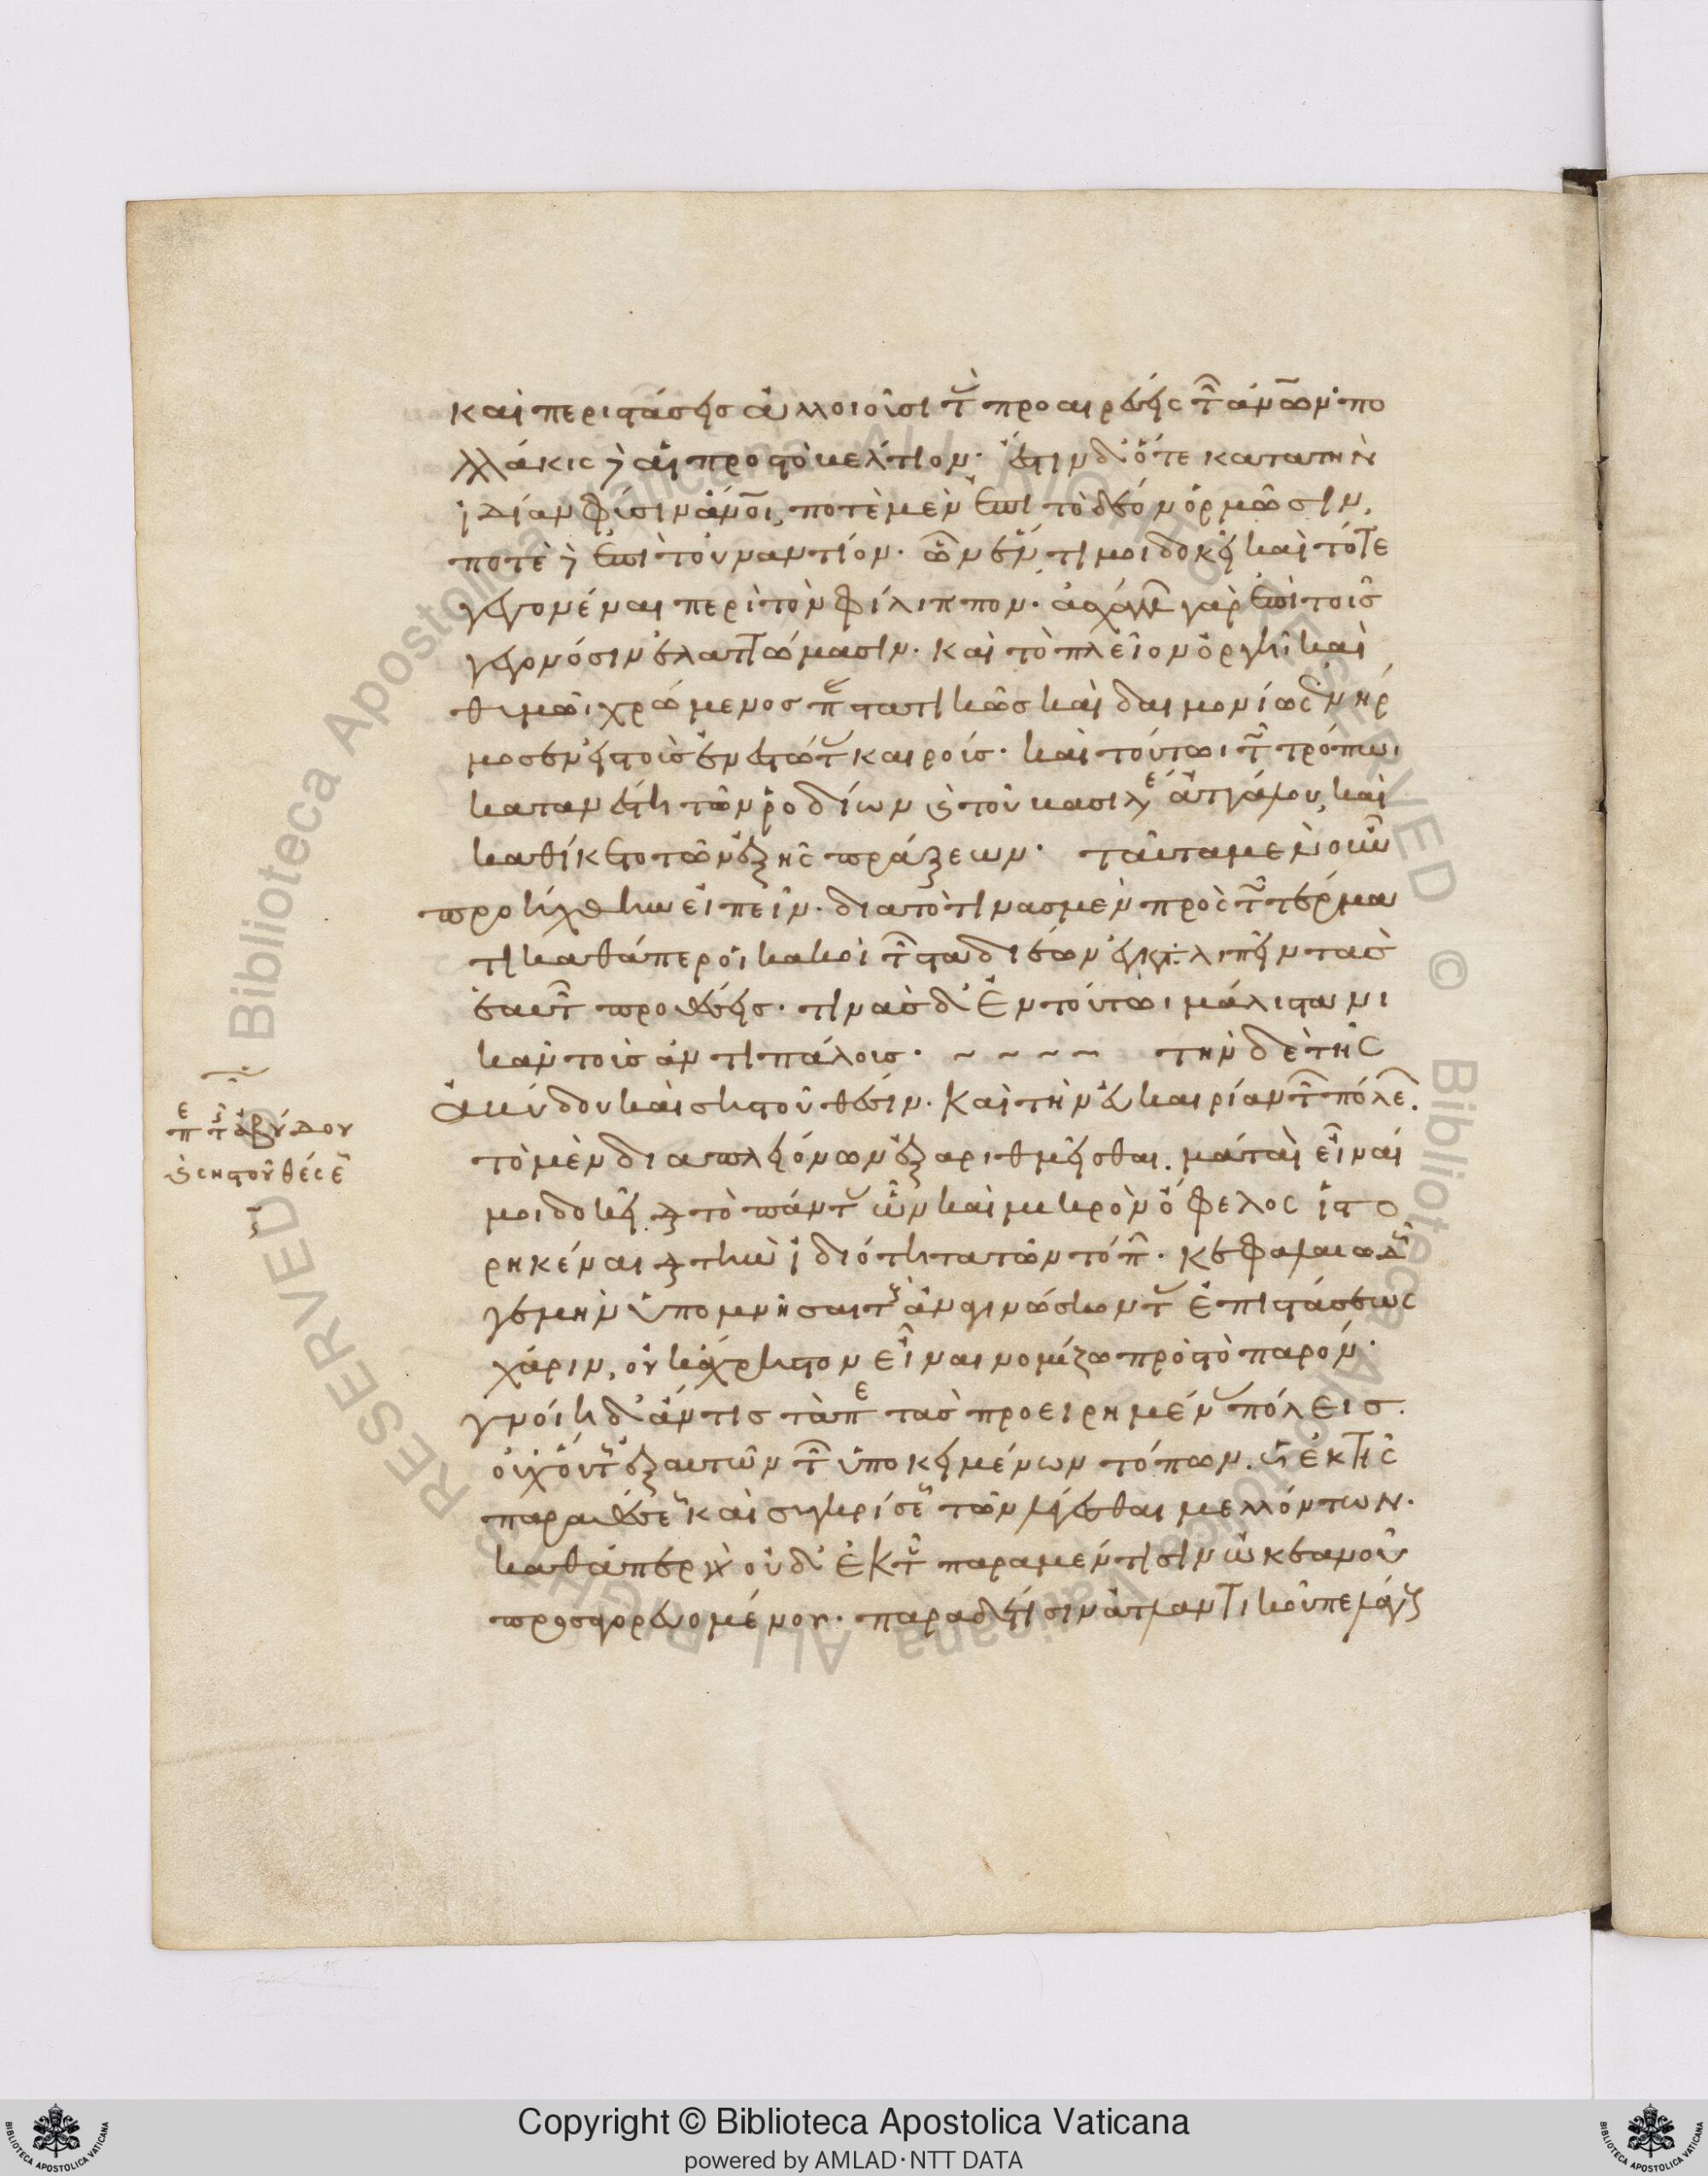 καὶ περιστάσεις ἀλλοιοῦσι τὰς προαιρέσεις τῶν ἀνθρώπων πο
λλάκις δὲ καὶ πρὸς τὸ βέλτιον· ἔστιν δ' ὅτε κατὰ τὴν
ἰδίαν φύσιν ἄνθρωποι, ποτὲ μὲν ἐπὶ τὸ δέον ὁρμῶσιν,
ποτὲ δὲ ἐπὶ τοὐναντίον· ὧν ἕν τί μοι δοκεῖ καὶ τότε
γεγονέναι περὶ τὸν φίλιππον· ἀσχάλλων γὰρ ἐπὶ τοῖς
γεγονόσιν ἐλαττώμασιν· καὶ τὸ πλεῖον ὀργῆι καὶ
θυμῶι χρώμενος παραστατικῶς καὶ δαιμονίως ἐνήρ
μοσεν εἰς τοὺς ἐνεστῶτας καιρούς· καὶ τούτωι τῶ τρόπωι
κατανέστη τῶν ῥοδίων καὶ τοῦ βασιλέως ἀττάλου, καὶ
καθίκετο τῶν ἑξῆς πράξεων· ταῦτα μὲν οὖν
προήχθην εἰπεῖν· διὰ τὸ τινὰς μὲν πρὸς τῶ τέρμα
τι καθάπερ οἱ κακοὶ τῶν σταδιέων ἐγκαταλιπεῖν τὰς
ἑαυτῶν προθέσεις· τινὰς δ' ἐν τούτωι μάλιστα νι
κᾶν τοὺς ἀντιπάλους· ~ ~ ~ ~ τὴν δὲ τῆς
ἀβύδου καὶ σηστοῦ θέσιν· καὶ τὴν εὐκαιρίαν τῶν πόλεων
τὸ μὲν διὰ πλειόνων ἐξαριθμεῖσθαι μάταιον εἶναί
μοι δοκεῖ διὰ τὸ πάντας ὧν καὶ μικρὸν ὄφελος ἱστο
ρηκέναι διὰ τὴν ἰδιότητα τῶν τόπων· κεφαλαιωδῶς
γε μὴν ὑπομνῆσαι τοὺς ἀναγινώσκοντας ἐπιστάσεως
χάριν, οὐκ ἄχρηστον εἶναι νομίζω πρὸς τὸ παρόν·
γνοίη δ' ἄν τις τὰ περὶ τὰς προειρημένας πόλεις
οὐχ οὕτως ἐξ αὐτῶν τῶν ὑποκειμένων τόπων. ὡς ἐκ τῆς
παραθέσεως καὶ συγκρίσεως τῶν λέγεσθαι μελλόντων.
καθάπερ γὰρ οὐδ' ἐκ τοῦ παρὰ μέν τισιν ὠκεανοῦ
προσαγορευομένου· παρὰ δέ τισιν ἀτλαντικοῦ πελάγους
περὶ τῆς ἀβύδου
καὶ σηστοῦ θέσεως